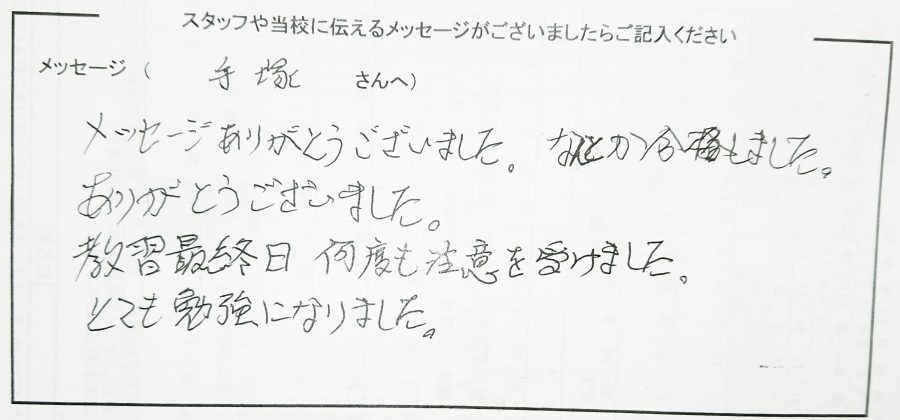 スタッフや当校に伝えるメッセージがございましたらご記入ください
メッセージ ( 手塚 さんへ)
メッセージありがとうございました。なんとか合格しました。
ありがとうございました。
教習最終日 何度も注意を受けました。
とても勉強になりました。